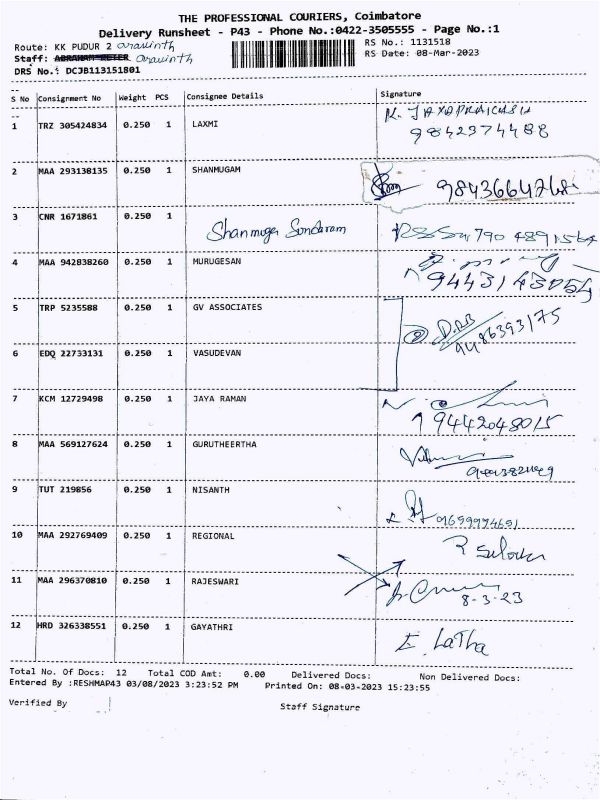 THE PROFESSIONAL COURIERS, Coimbatore
Delivery Runsheet - P43 - Phone No.:0422-3505555 - Page No.:1
Route: KK PUDUR 2 aravinth
RS No.: 1131518
Staff: aravinth
RS Date: 08-Mar-2023
DRS No.: DCJB113151801
S No Consignment No Weight PCS Consignee Details Signature
1 TRZ 305424834 0.250 1 LAXMI K. JAYAPRAKASH
9842374488
2 MAA 293138135 0.250 1 SHANMUGAM 9843664768
3 CNR 1671861 0.250 1 Shanmuga Sundaram
4 MAA 942838260 0.250 1 MURUGESAN
9443143054
5 TRP 5235588 0.250 1 GV ASSOCIATES
9486393175
6 EDQ 22733131 0.250 1 VASUDEVAN
7 KCM 12729498 0.250 1 JAYA RAMAN
9442048015
8 MAA 569127624 0.250 1 GURUTHEERTHA
9 TUT 219856 0.250 1 NISANTH
9659994651
10 MAA 292769409 0.250 1 REGIONAL
11 MAA 296370810 0.250 1 RAJESWARI
8-3-23
12 HRD 326338551 0.250 1 GAYATHRI
E. Latha
Total No. Of Docs: 12 Total COD Amt: 0.00 Delivered Docs: Non Delivered Docs:
Entered By :RESHMAP43 03/08/2023 3:23:52 PM Printed On: 08-03-2023 15:23:55
Verified By
Staff Signature